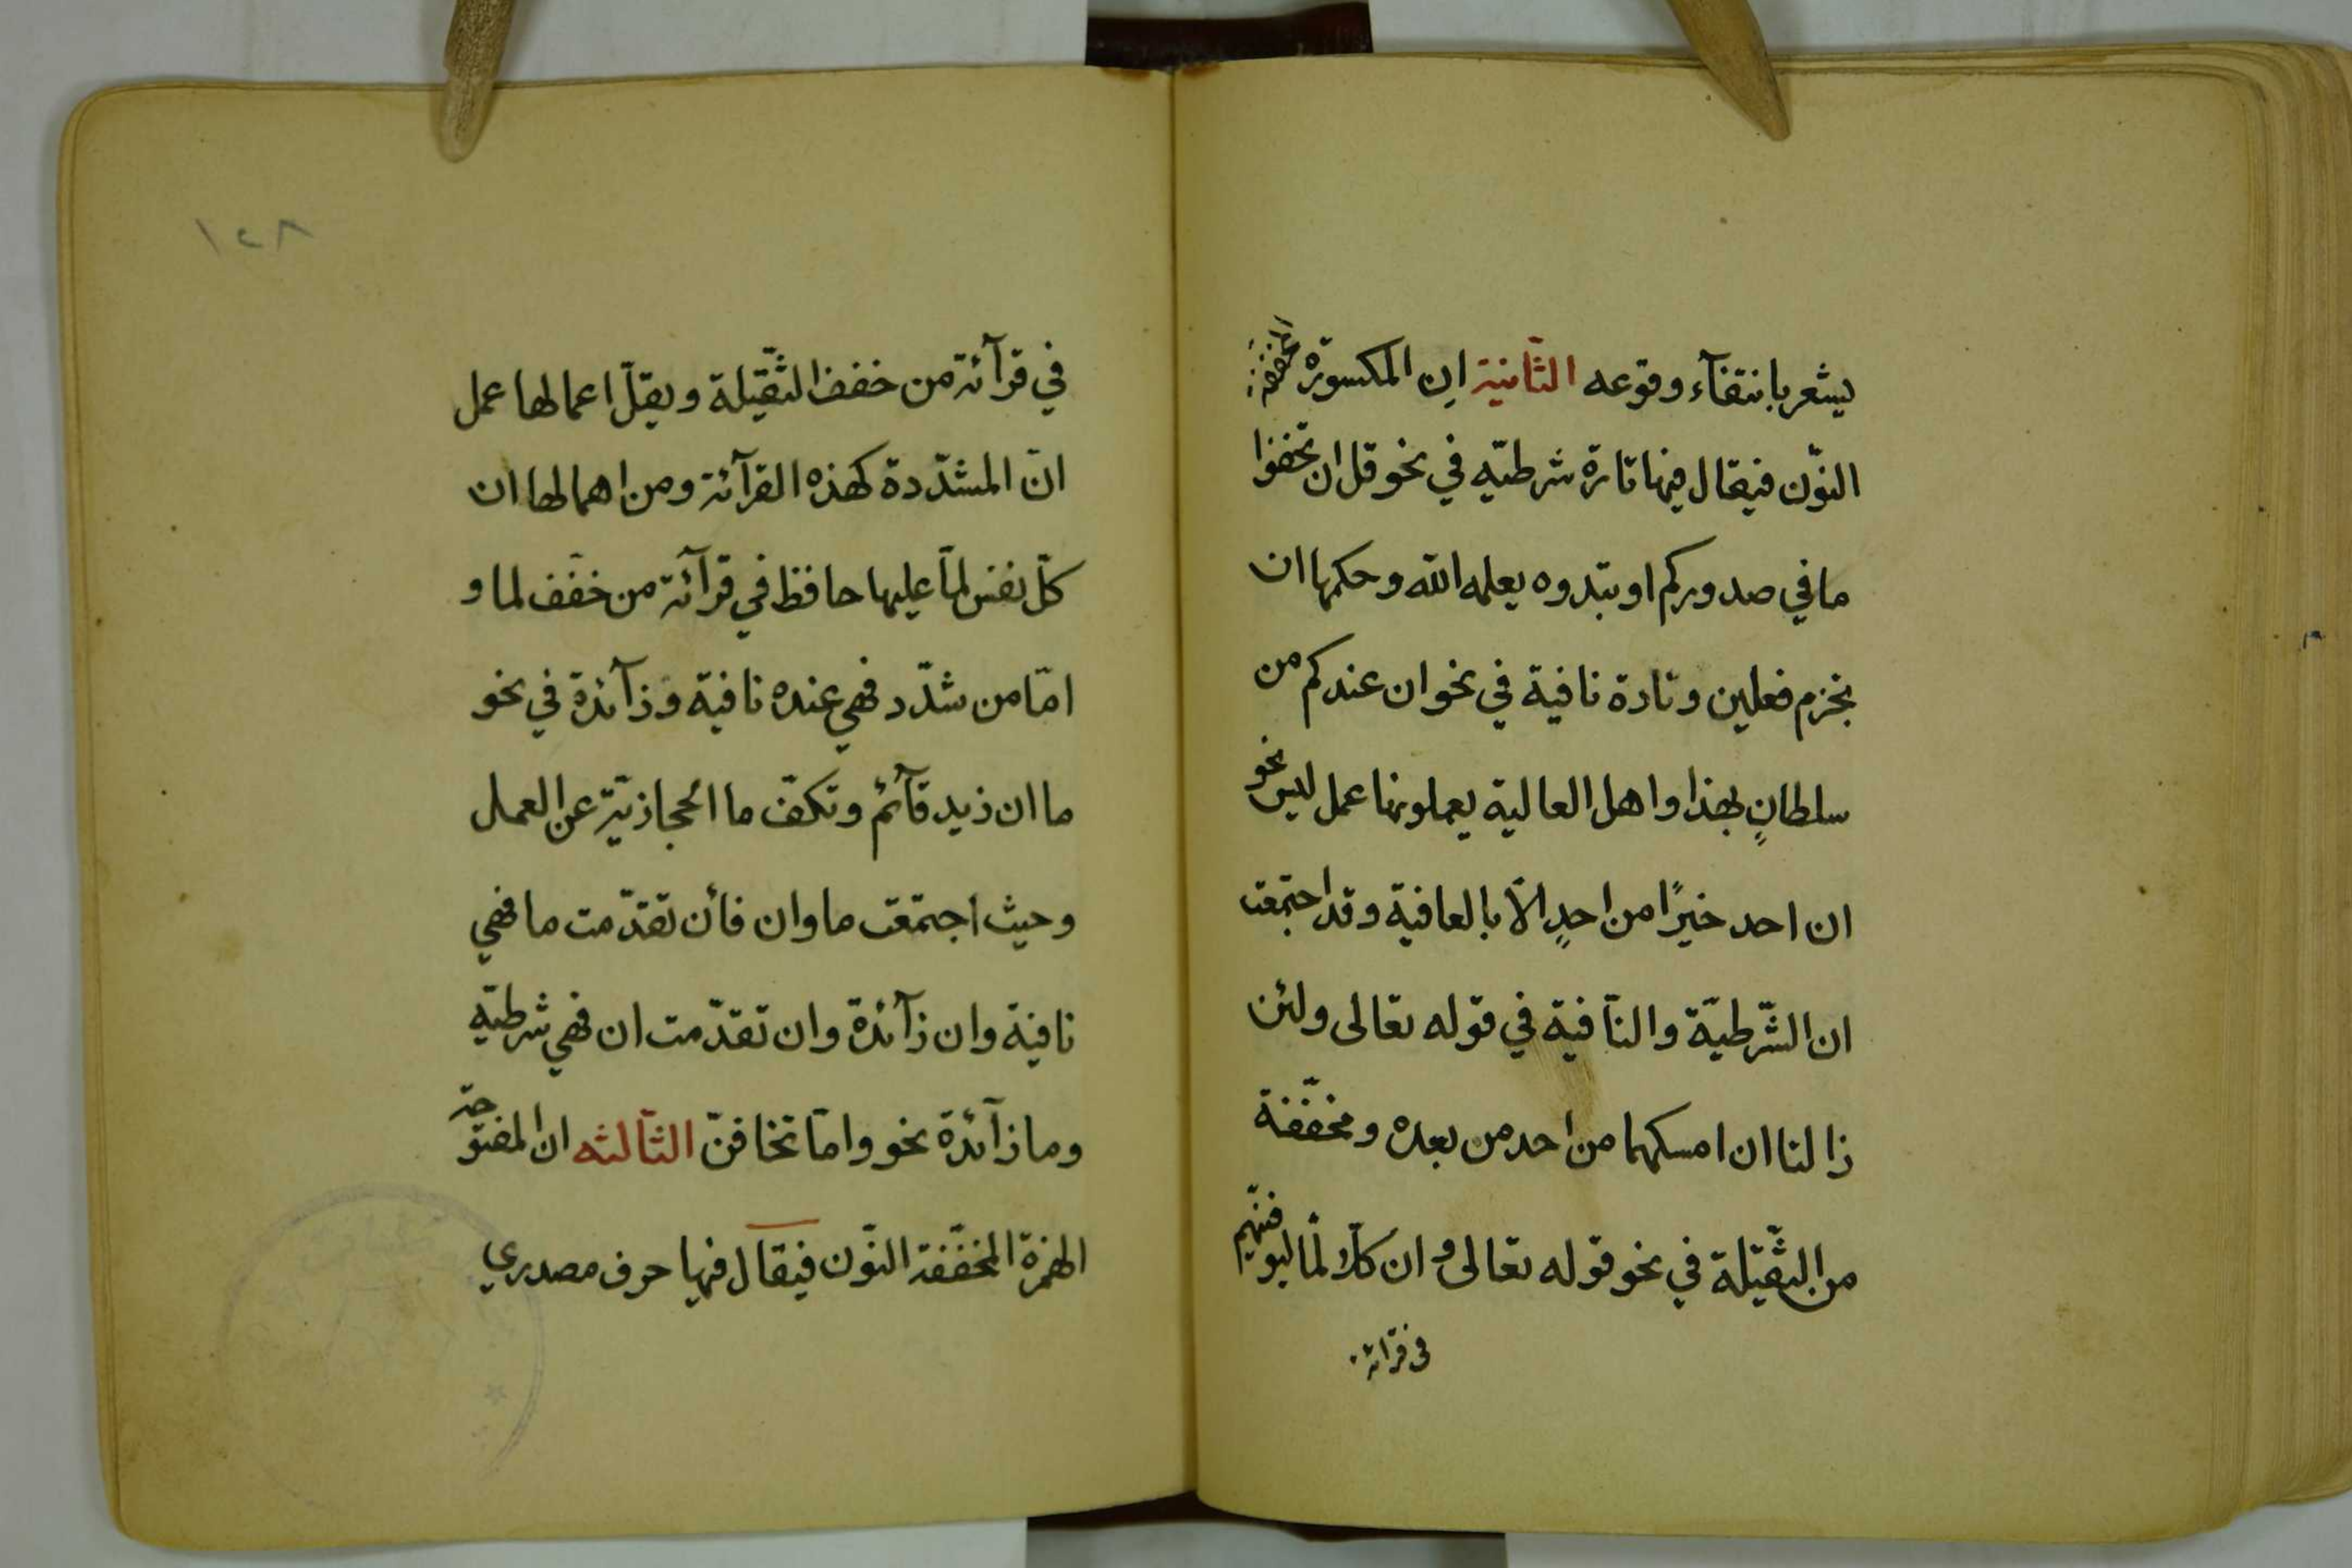 يشعر بانتفآء وقوعه الثّانية ان المكسورة المخففة
النّون فيقال فيها تارة شرطيّه في نحو قل ان تخفوا
ما في صدوركم او تبدوه يعلمه الله وحكمها ان
تجزم فعلين وتارة نافية في نحو ان عندكم من
سلطانٍ بهذا واهل العالية يعملونها عمل ليس نحو
ان احد خيرًا من احدٍ الّا بالعافية وقد اجتمعت
ان الشّرطيّة والنّافية في قوله تعالى ولئن
زالتا ان امسكهما من احد من بعده ومخفّفة
من الثّقيلة في نحو قوله تعالى وان كلّا لمّا ليوفينّهم
في قرآئة
١٢٨
في قرآئة من خفف الثّقيلة ويقلّ اعمالها عمل
انّ المشدّدة كهذه القرآئة ومن اهمالها ان
كلّ نفس لمّا عليها حافظ في قرآئة من خفّف لما و
امّا من شدّد فهي عنده نافية وزآئدة في نحو
ما ان زيد قآئم وتكفّ ما الحجازيّة عن العمل
وحيث اجتمعت ما وان فأن تقدّمت ما فهي
نافية وان زآئدة وان تقدّمت ان فهي شرطيّه
وما زآئدة نحو وامّا تخافنّ الثّالثه ان المفتوحة
الهمزة المخفّفة النّون فيقال فيها حرف مصدري